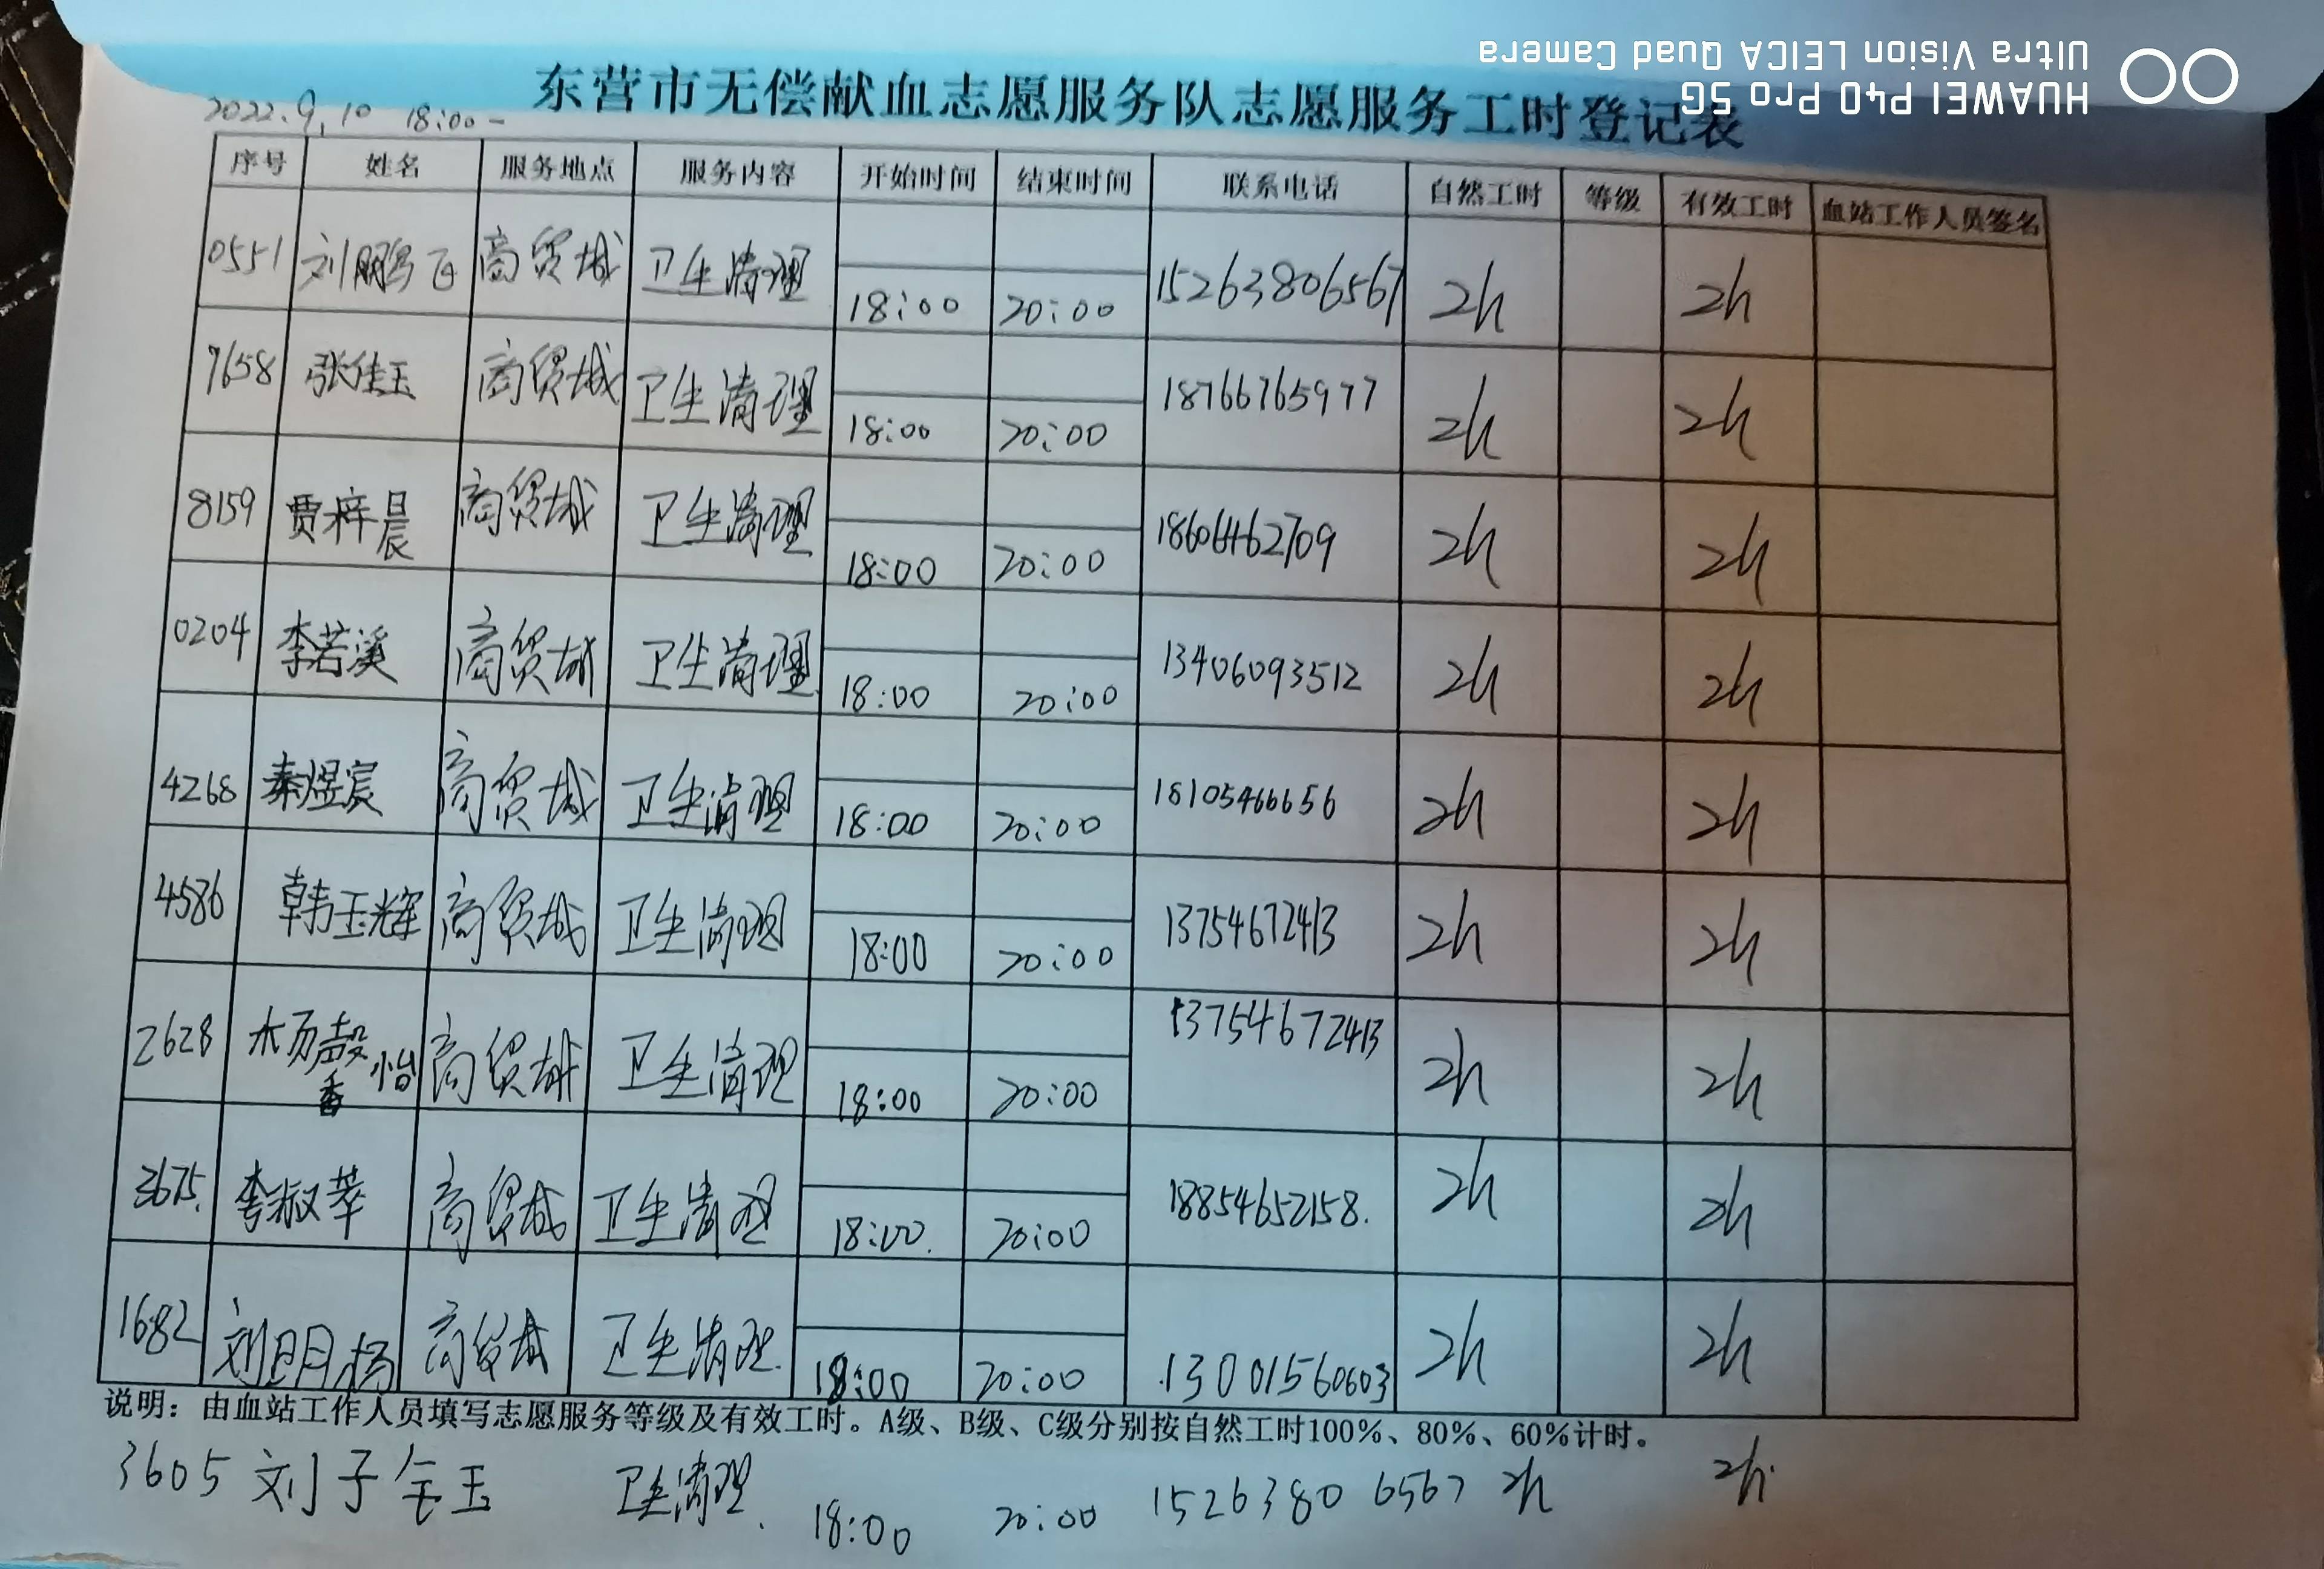 HUAWEI P40 Pro 5G
Ultra Vision LEICA Quad Camera
东营市无偿献血志愿服务队志愿服务工时登记表
2022.9.10 18:00-
序号 姓名 服务地点 服务内容 开始时间 结束时间 联系电话 自然工时 等级 有效工时 血站工作人员签名
0551 刘鹏飞 商贸城 卫生清理 18:00 20:00 15263806567 2h 2h
7658 张佳玉 商贸城 卫生清理 18:00 20:00 18766765977 2h 2h
8159 贾梓晨 商贸城 卫生清理 18:00 20:00 18606462709 2h 2h
0204 李若溪 商贸城 卫生清理 18:00 20:00 13406093512 2h 2h
4268 秦煜宸 商贸城 卫生清理 18:00 20:00 18105466656 2h 2h
4586 韩玉辉 商贸城 卫生清理 18:00 20:00 13754672413 2h 2h
2628 商贸城 卫生清理 18:00 20:00 13754672413 2h 2h
3675. 李淑苹 商贸城 卫生清理 18:00. 20:00 18854652158. 2h 2h
1682 刘明杨 商贸城 卫生清理. 18:00 20:00 .13001560603 2h 2h
说明：由血站工作人员填写志愿服务等级及有效工时。A级、B级、C级分别按自然工时100%、80%、60%计时。
3605 刘子 玉 卫生清理. 18:00 20:00 15263806567 2h 2h.